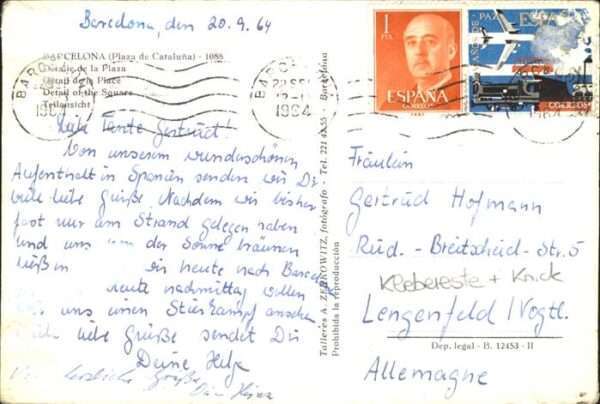 Barcelona, den 20.9.64
BARCELONA (Plaza de Cataluña) - 1088
Detalle de la Plaza
Détail de la Place
Detail of the Square
Teilansicht
Liebe Tante Gertrud!
Von unserem wunderschönen
Aufenthalt in Spanien senden wir Dir
viele liebe Grüße. Nachdem wir bisher
fast nur am Strand gelegen haben
und uns von der Sonne bräunen
ließen heute nach Barcel
heute nachmittag wollen
uns einen Stierkampf ansehen
liebe Grüße sendet Dir
Deine Helga
herzliche Grüße
Talleres A. ZERKOWITZ, fotógrafo - Tel. 221 42 55 - Barcelona
Prohibida la reproducción
BARC
1964
BARC
1964
1 PTA
ESPAÑA
CORREOS
PAZ
ESPAÑA
CORREOS
Fräulein
Gertrud Hofmann
Rud.-Breitscheid-Str. 5
Klebereste + Knick
Lengenfeld / Vogtl.
Dep. legal - B. 12453 - II
Allemagne